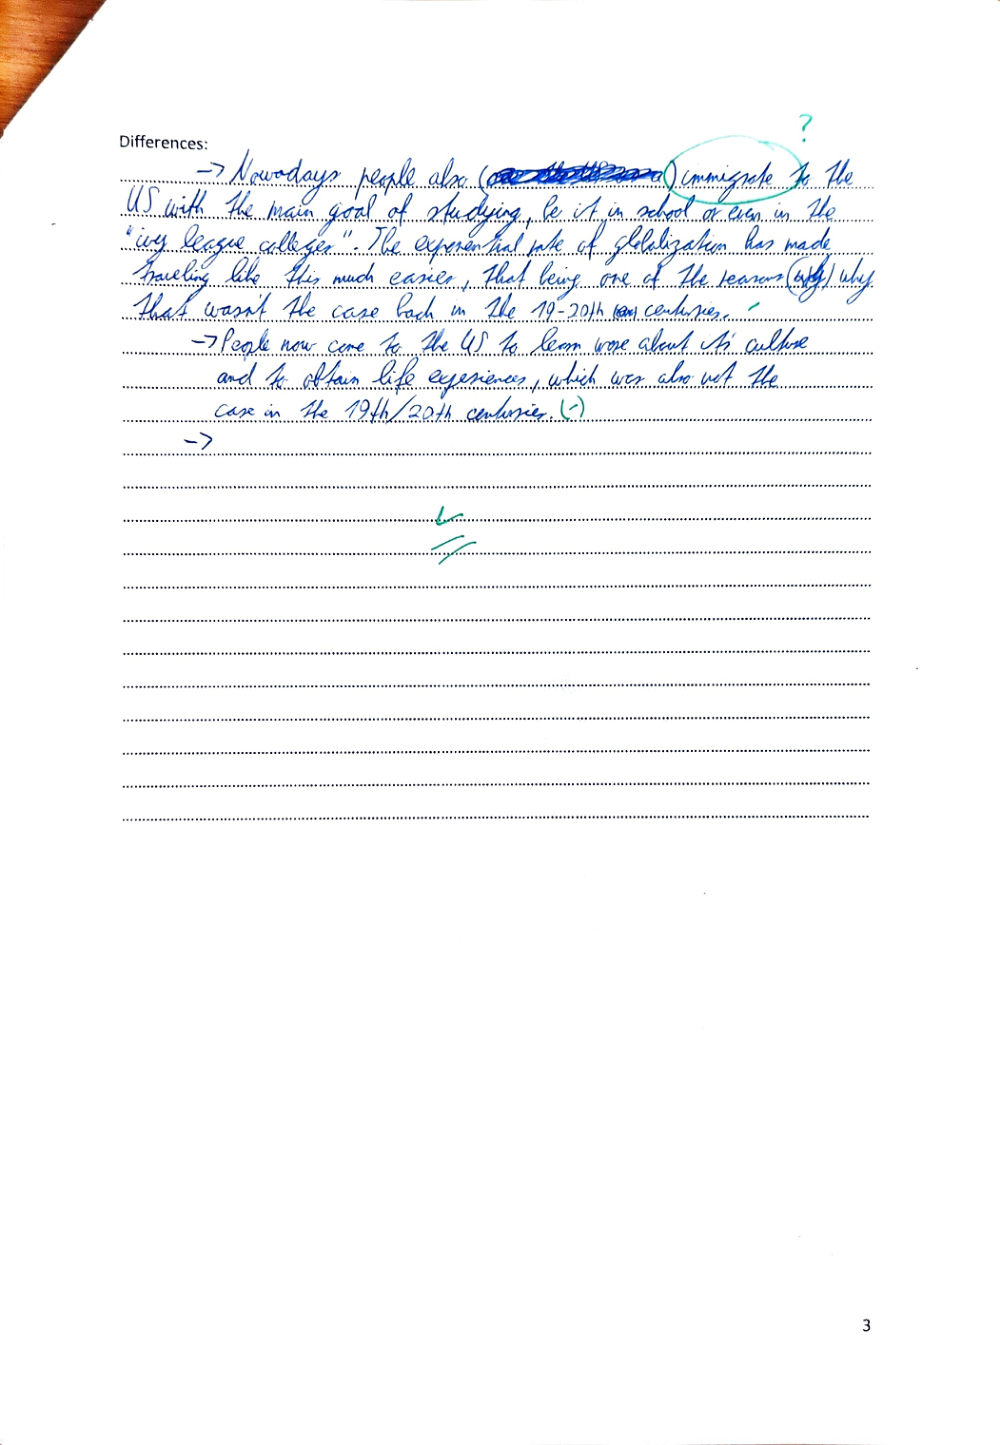 Differences:
?
-> Nowadays people also ( ) immigrate to the
US with the main goal of studying, be it in school or even in the
"ivy league colleges". The exponential rate of globalization has made
traveling like this much easier, that being one of the reasons (why) why
that wasn't the case back in the 19-20th centuries.
-> People now come to the US to learn more about its culture
and to obtain life experiences, which was also not the
case in the 19th/20th centuries. (-)
->
3